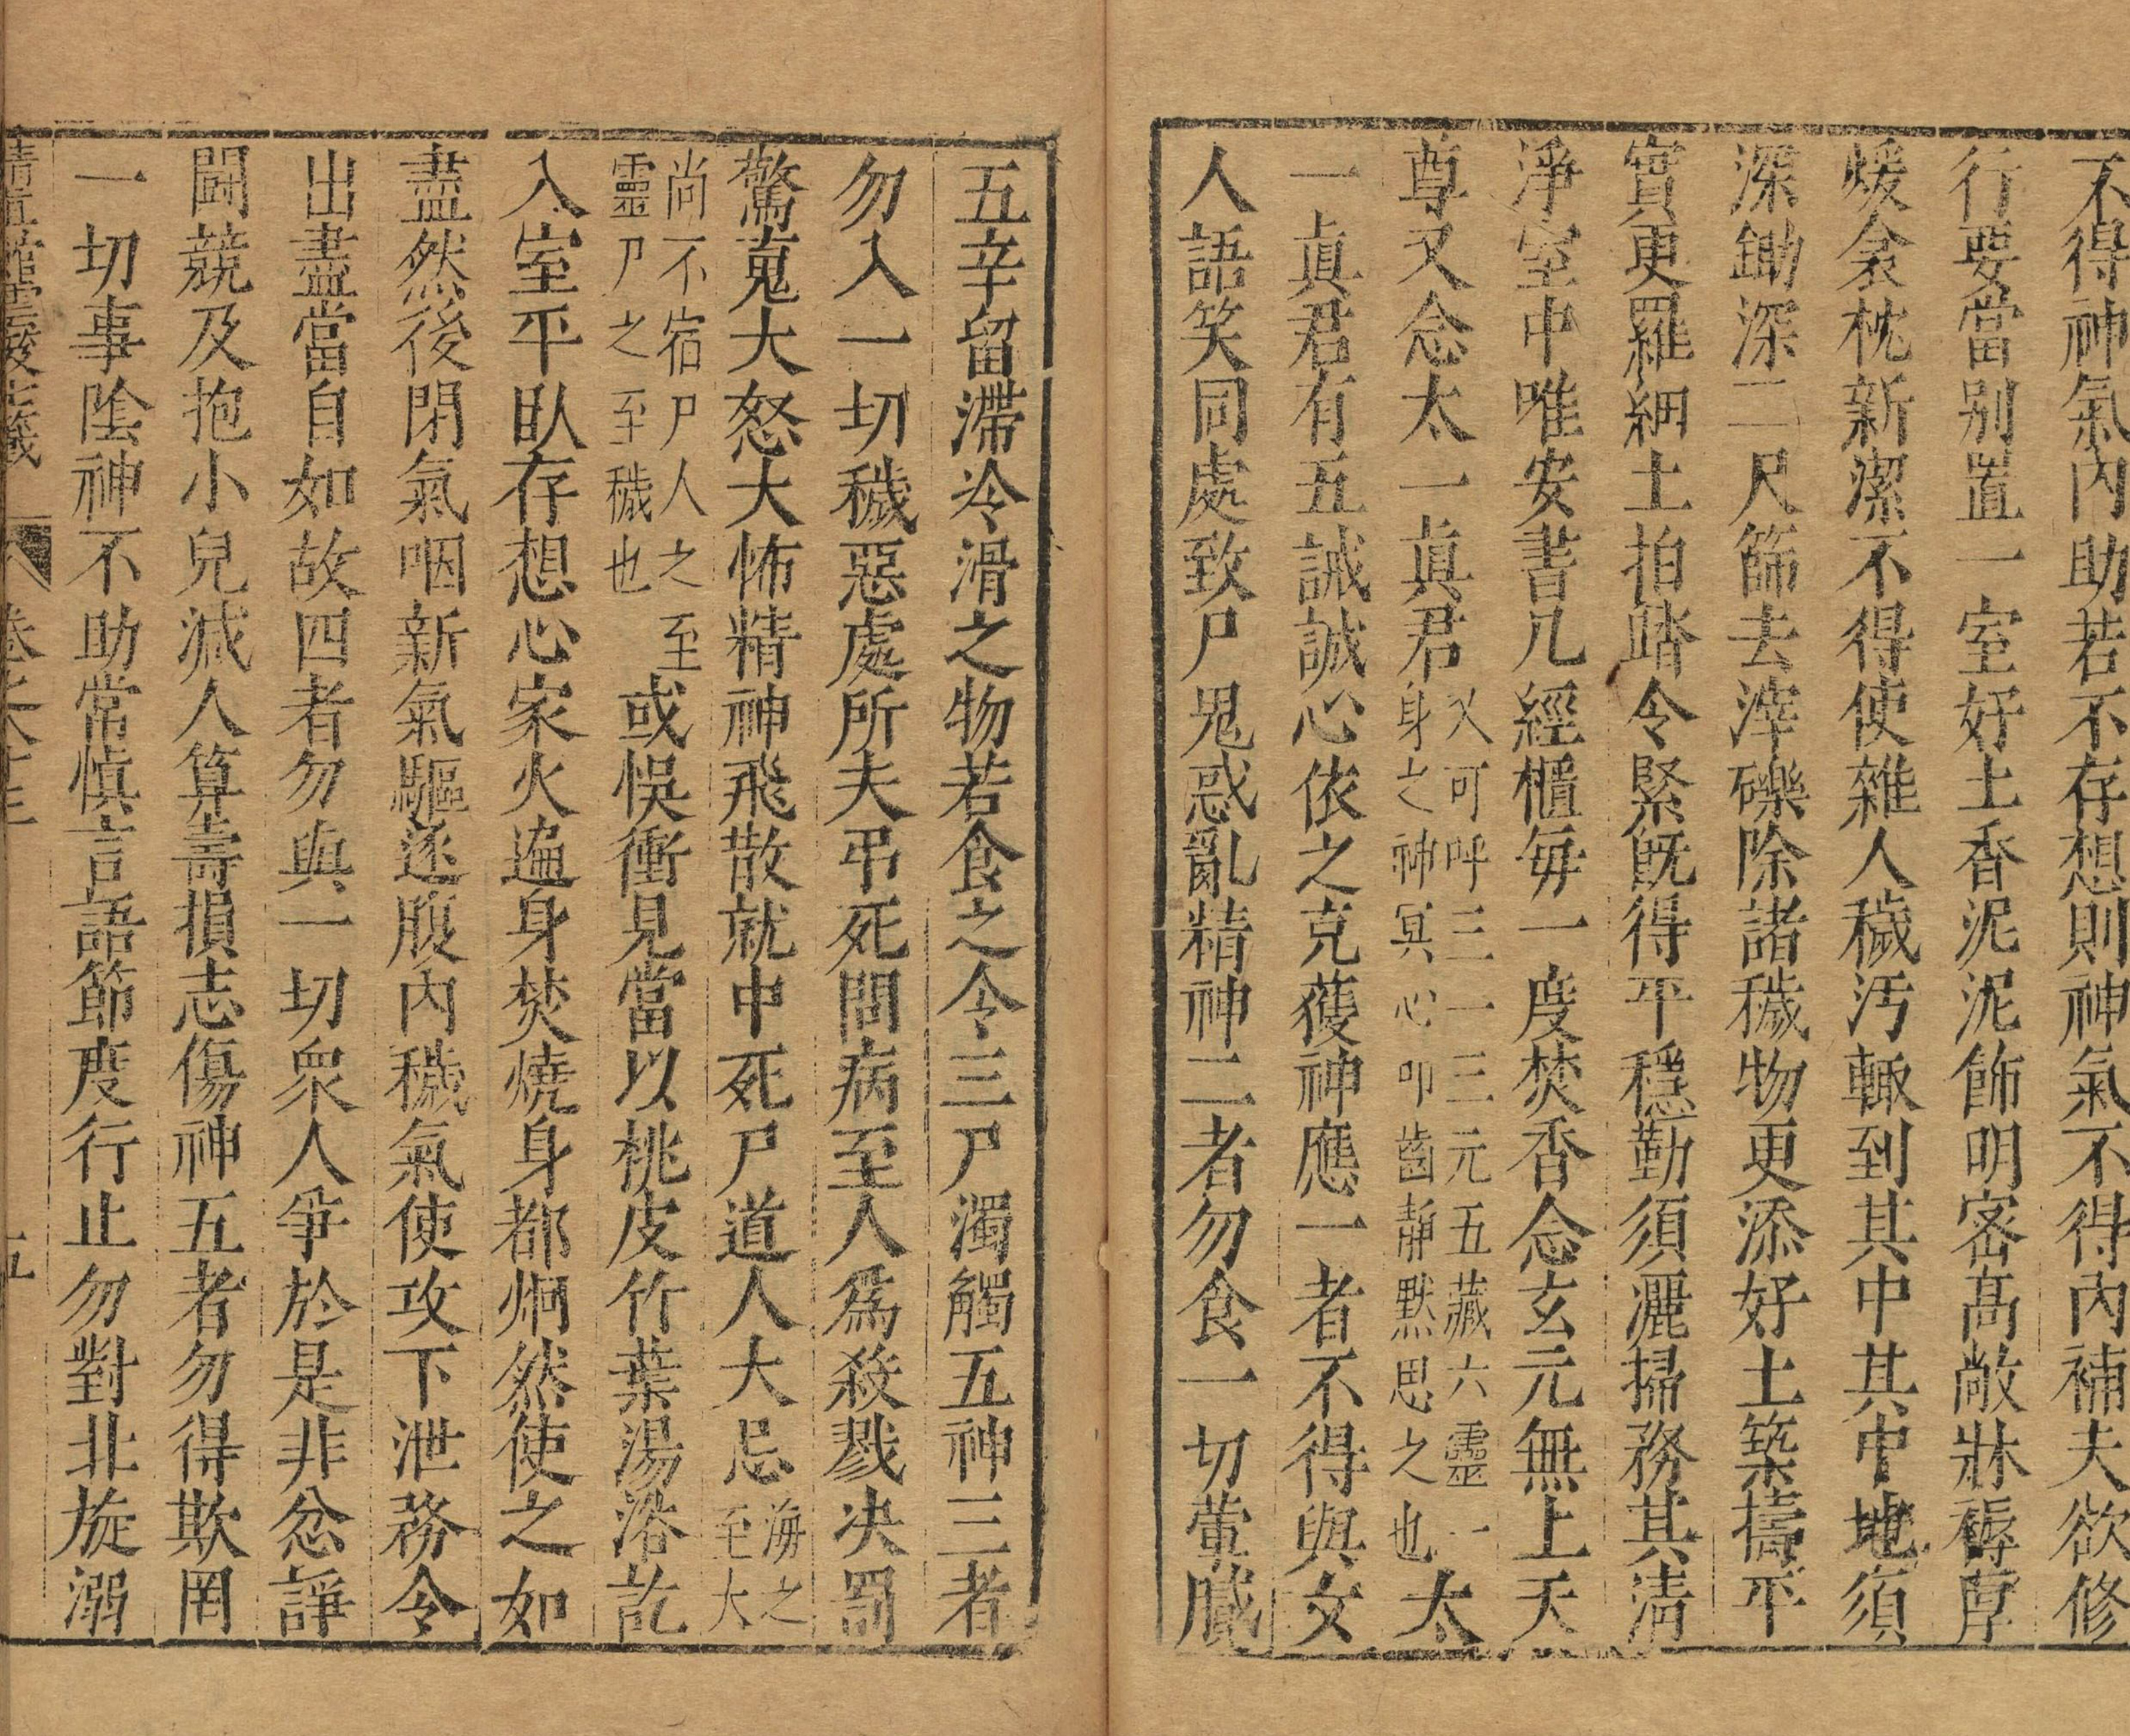 不得神氣內助若不存想則神氣不得內補夫欲修
行要當别置一室好土香泥泥飾明密高敞牀褥厚
煖衾枕新潔不得使雜人穢汚輙到其中其中地須
深鋤深二尺篩去滓礫除諸穢物更添好土築擣平
實更羅細土拍踏令緊旣得平穩勤須灑掃務其清
淨室中唯安書几經櫃每一度焚香念玄元無上天
尊又念太一眞君又可呼三一三元五藏六靈一身之神冥心叩齒靜默思之也太
一眞君有五誡誠心依之克獲神應一者不得與女
人語笑同處致尸鬼惑亂精神二者勿食一切葷臓
五辛留滯冷滑之物若食之令三尸濁觸五神三者
勿入一切穢惡處所夫弔死問病至人爲殺戮决罰
驚䰟大怒大怖精神飛散就中死尸道人大忌海之至大
尚不宿尸人之至靈尸之至穢也或悞衝見當以桃皮竹葉湯浴訖
入室平臥存想心家火遍身焚燒身都炯然使之如
盡然後閉氣咽新氣驅逐腹內穢氣使攻下泄務令
出盡當自如故四者勿與一切衆人爭於是非忿諍
鬪競及抱小兒減人算壽損志傷神五者勿得欺罔
一切事陰神不助常慎言語節度行止勿對北旋溺